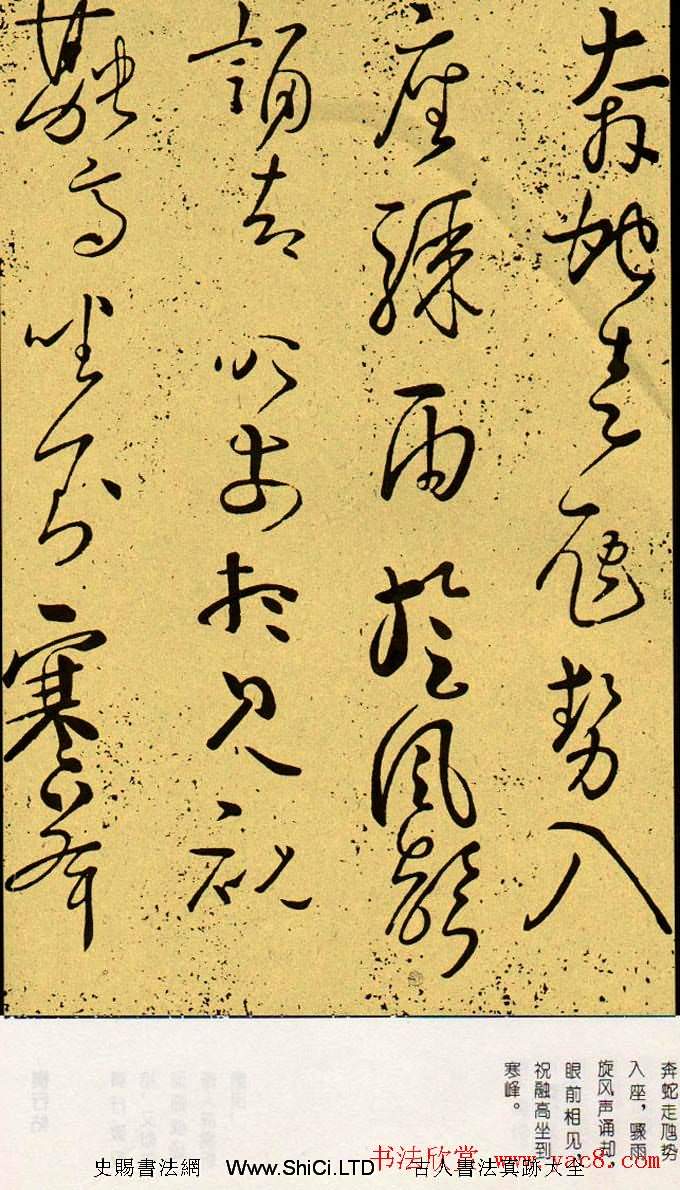 奔虵走虺勢入
座驟雨旋風聲
誦却眼前相見祝
融高坐到寒峯
奔蛇走虺势
入座，骤雨
旋风声诵却，
眼前相见，
祝融高坐到
寒峰。
书法欣赏 www.yac8.com
史賜書法網 Www.ShiCi.LTD 古人書法真跡大全